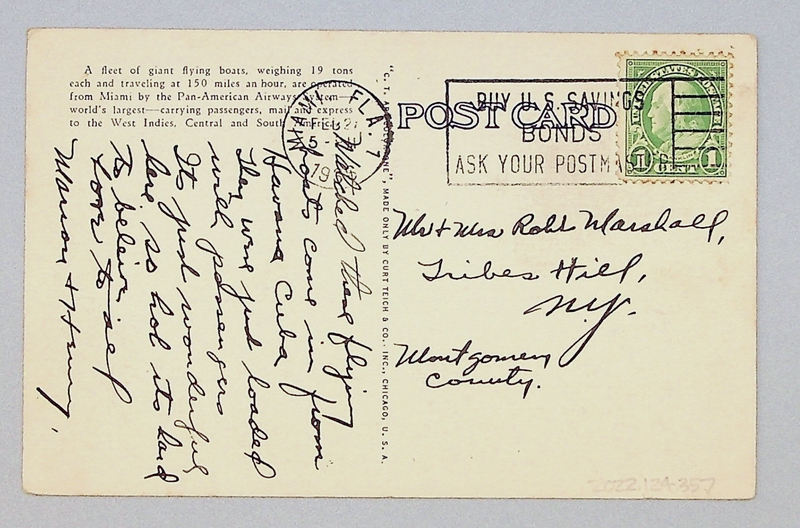 A fleet of giant flying boats, weighing 19 tons
each and traveling at 150 miles an hour, are operated
from Miami by the Pan-American Airways System—
world's largest—carrying passengers, mail and express
to the West Indies, Central and South America.
"C. T. ART-COLORTONE", MADE ONLY BY CURT TEICH & CO., INC., CHICAGO, U. S. A.
POST CARD
MIAMI FLA. 7
FEB 2
5
19
BUY U.S. SAVINGS
BONDS
ASK YOUR POSTMASTER
1 1
Watched these flying
boats come in from
Havana Cuba
They were just loaded
with passengers
Its just wonderful
here so hot its hard
to believe
Love to all
Marion + Henry,
Mr + Mrs Robt Marshall,
Tribes Hill,
N.Y.
Montgomery
County.
2022.124.357